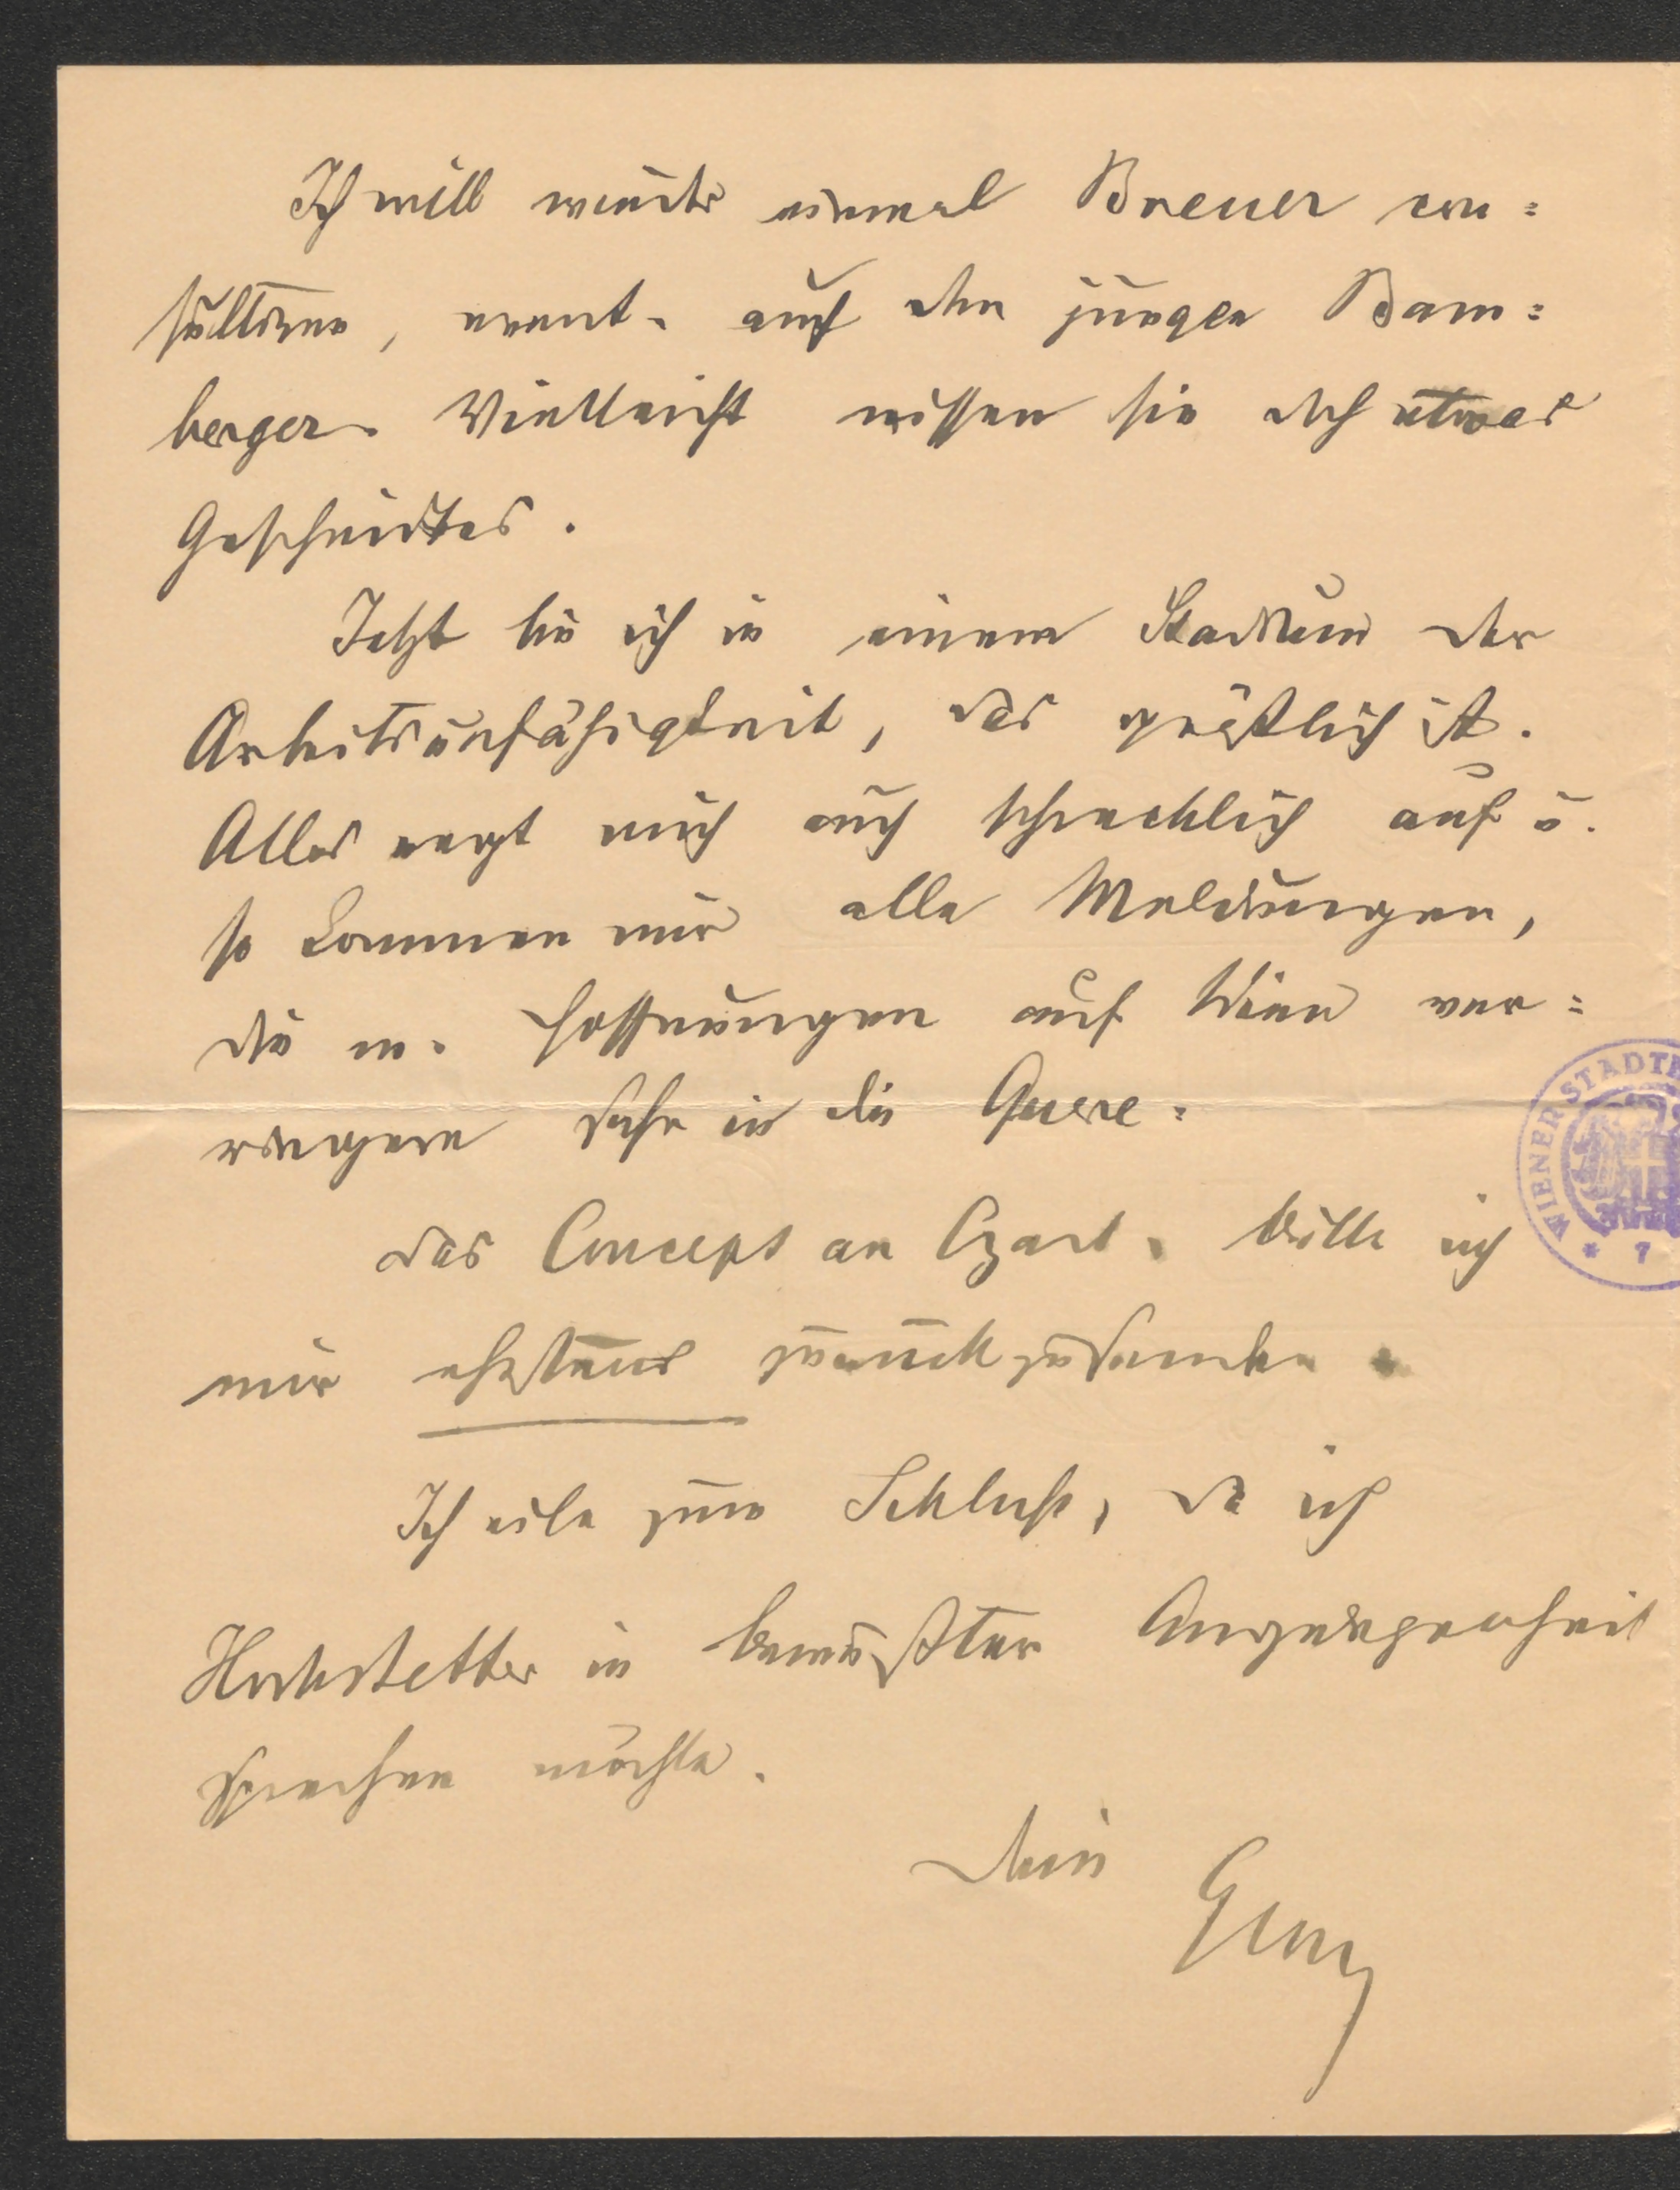 Ich will wieder einmal Breuer con=
sultiren, event. auch den jungen Bam=
berger. Vielleicht wissen sie doch etwas
Gescheidtes.
Jetzt bin ich in einem Stadium der
Arbeitsunfähigkeit, das gräßlich ist.
Alles regt mich auch schrecklich auf u.
so kommen mir alle Meldungen,
die m. Hoffnungen auf Wien ver=
ringern sehr in die Quere.
Das Concept an Czart. bitte ich
mir ehestens zurückzusenden.
Ich eile zum Schluß, da ich
Hochstetter in bewußter Angelegenheit
sprechen möchte.
Dein
WIENER STADT
* 7